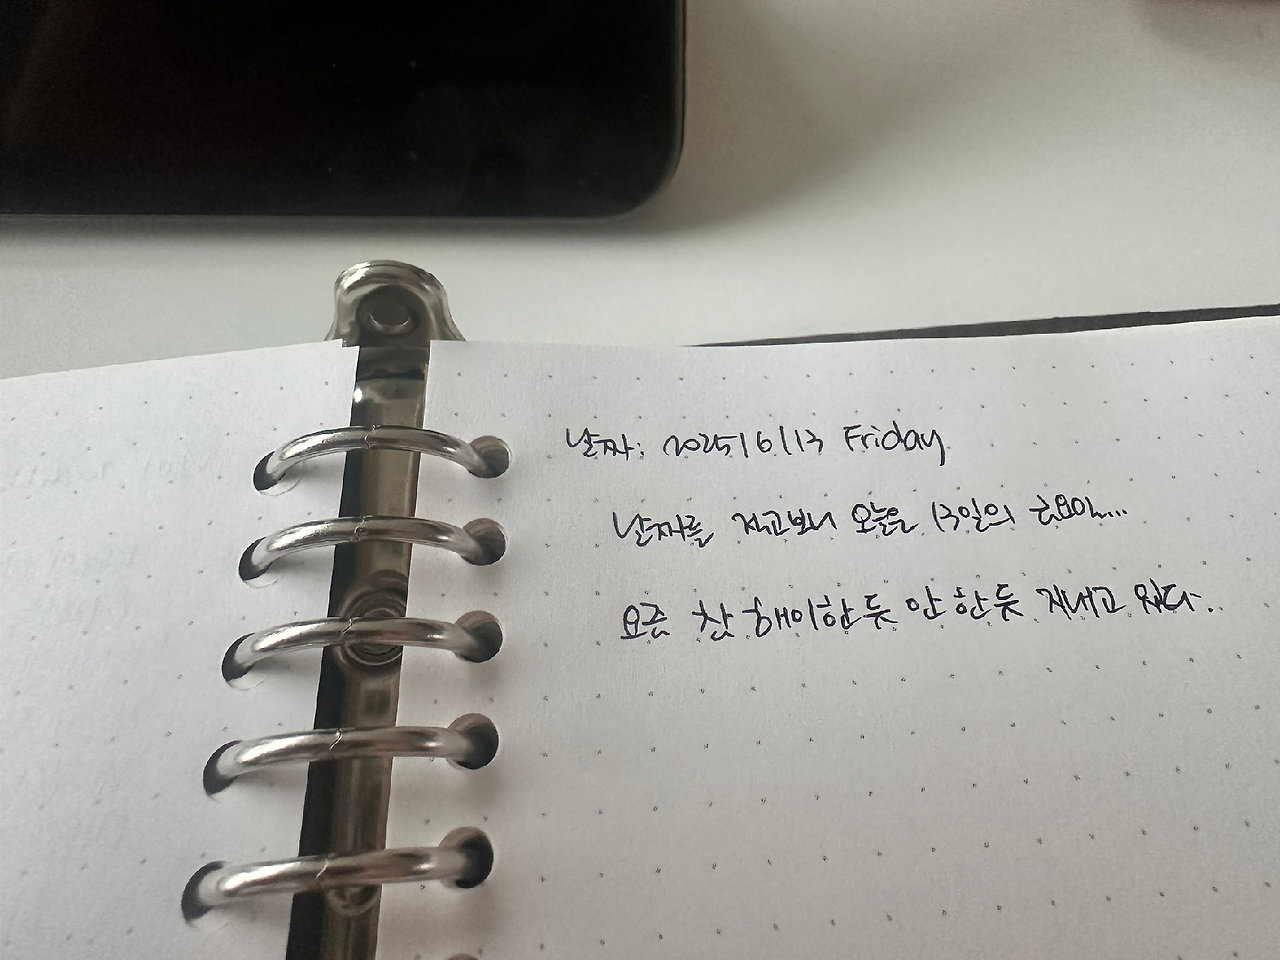 날짜: 2025/6/13 Friday
날짜를 적고보니 오늘은 13일의 금요일...
요즘 참 해이한듯 안 한듯 지내고 있다.